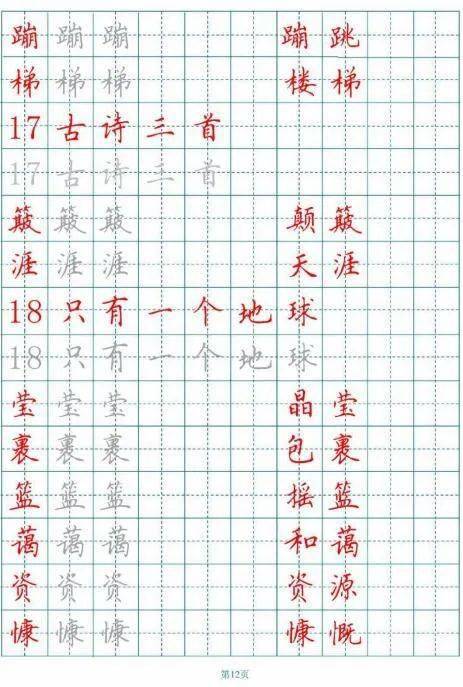 蹦蹦蹦 蹦跳
梯梯梯 楼梯
17古诗三首
17古诗三首
簸簸簸 颠簸
涯涯涯 天涯
18只有一个地球
18只有一个地球
莹莹莹 晶莹
裹裹裹 包裹
篮篮篮 摇篮
蔼蔼蔼 和蔼
资资资 资源
慷慷慷 慷慨
第12页